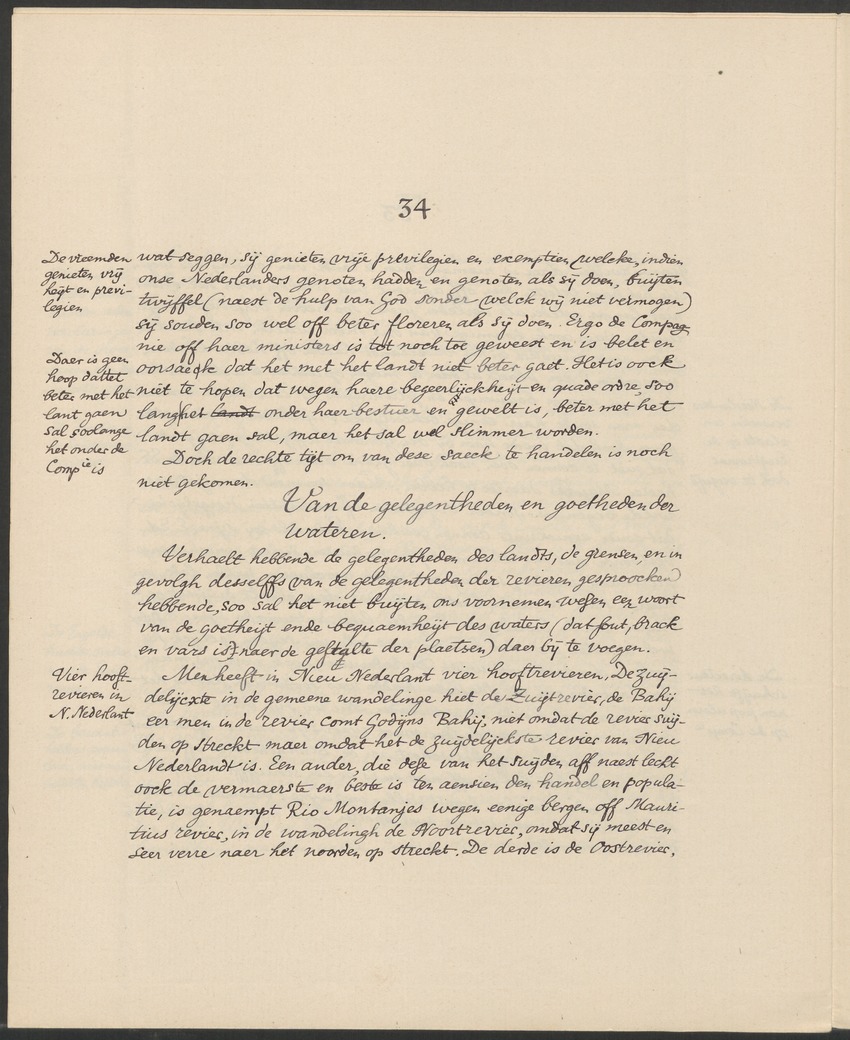 34
De vreemden
genieten vrij
heijt en previ-
legien
wat seggen, sij genieten vrije previlegien en exemptien welcke, indien
onse Nederlanders genoten hadden en genoten als sij doen, buijten
twijffel (naest de hulp van God sonder welck wij niet vermogen)
sij souden soo wel off beter floreren als sij doen. Ergo de Compag
nie off haer ministers is tot noch toe geweest en is belet en
oorsaeck dat het met het landt niet beter gaet. Het is oock
niet te hopen dat wegen haere begeerlijckheijt en quade ordre, soo
lang het landt onder haer bestuer en gewelt is, beter met het
landt gaen sal, maer het sal wel slimmer worden.
Daer is geen
hoop dattet
beter met het
lant gaen
sal soolange
het onder de
Compie is
Doch de rechte tijt om van dese saeck te handelen is noch
niet gekomen.
Van de gelegentheden en goetheden der
wateren.
Verhaelt hebbende de gelegentheden des landts, de grensen, en in
gevolgh desselffs van de gelegentheden der revieren gesproocken
hebbende, soo sal het niet buijten ons voornemen wesen een woort
van de goetheijt ende bequaemheijt des waters (dat sout, brack
en vars is) naer de gestalte der plaetsen) daer bij te voegen.
Vier hooft-
revieren in
N. Nederlant
Men heeft in Nieu Nederlant vier hooftrevieren, De zuij-
delijcxte in de gemeene wandelinge hiet de Zuijtrevier, de Bahij
eer men in de revier comt Godijns Bahij, niet omdat de revier suij-
den op streckt maer omdat het de zuijdelijckste revier van Nieu
Nederlandt is. Een ander, die dese van het suijden aff naest lecht
oock de vermaerste en beste is ten aensien den handel en popula-
tie, is genaempt Rio Montanjes wegen eenige bergen off Mauri-
tius revier, in de wandelingh de Noortrevier, omdat sij meest en
seer verre naer het noorden op streckt. De derde is de Oostrevier,